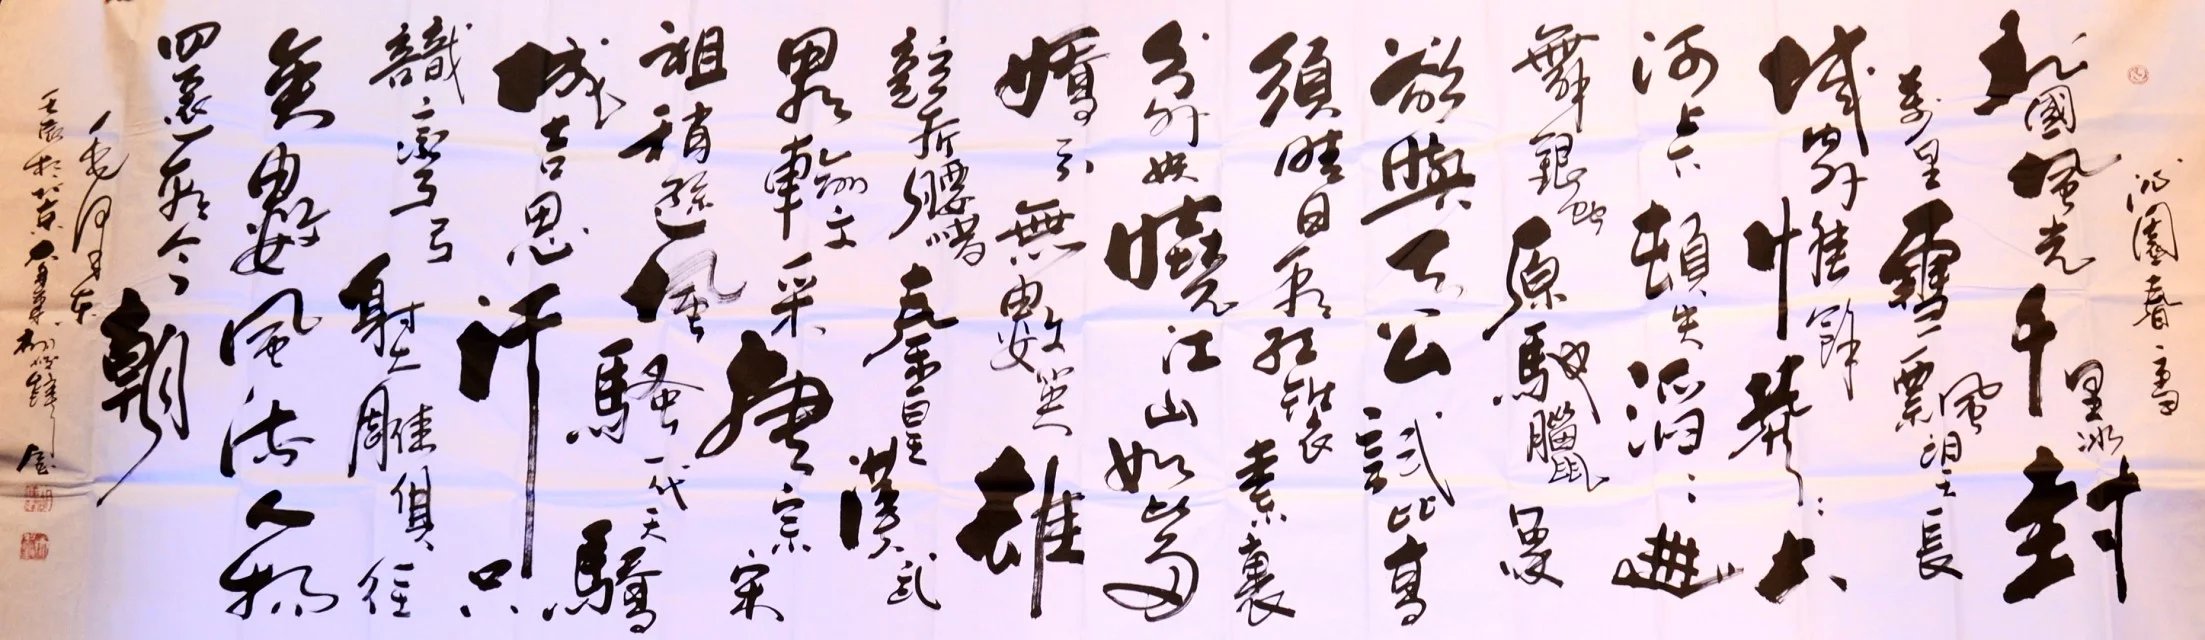 沁園春雪
北國風光千里冰封
萬里雪飄望長
城內外惟餘莽莽大
河上下頓失滔滔山
舞銀蛇原馳臘象
欲與天公試比高
須晴日看紅裝素裹
分外妖嬈江山如此多
嬌引無數英雄
競折腰惜秦皇漢武
畧輸文采唐宗宋
祖稍遜風騷一代天驕
成吉思汗只
識彎弓射大雕俱往
矣數風流人物
還看今朝
毛澤東
壬辰於北京